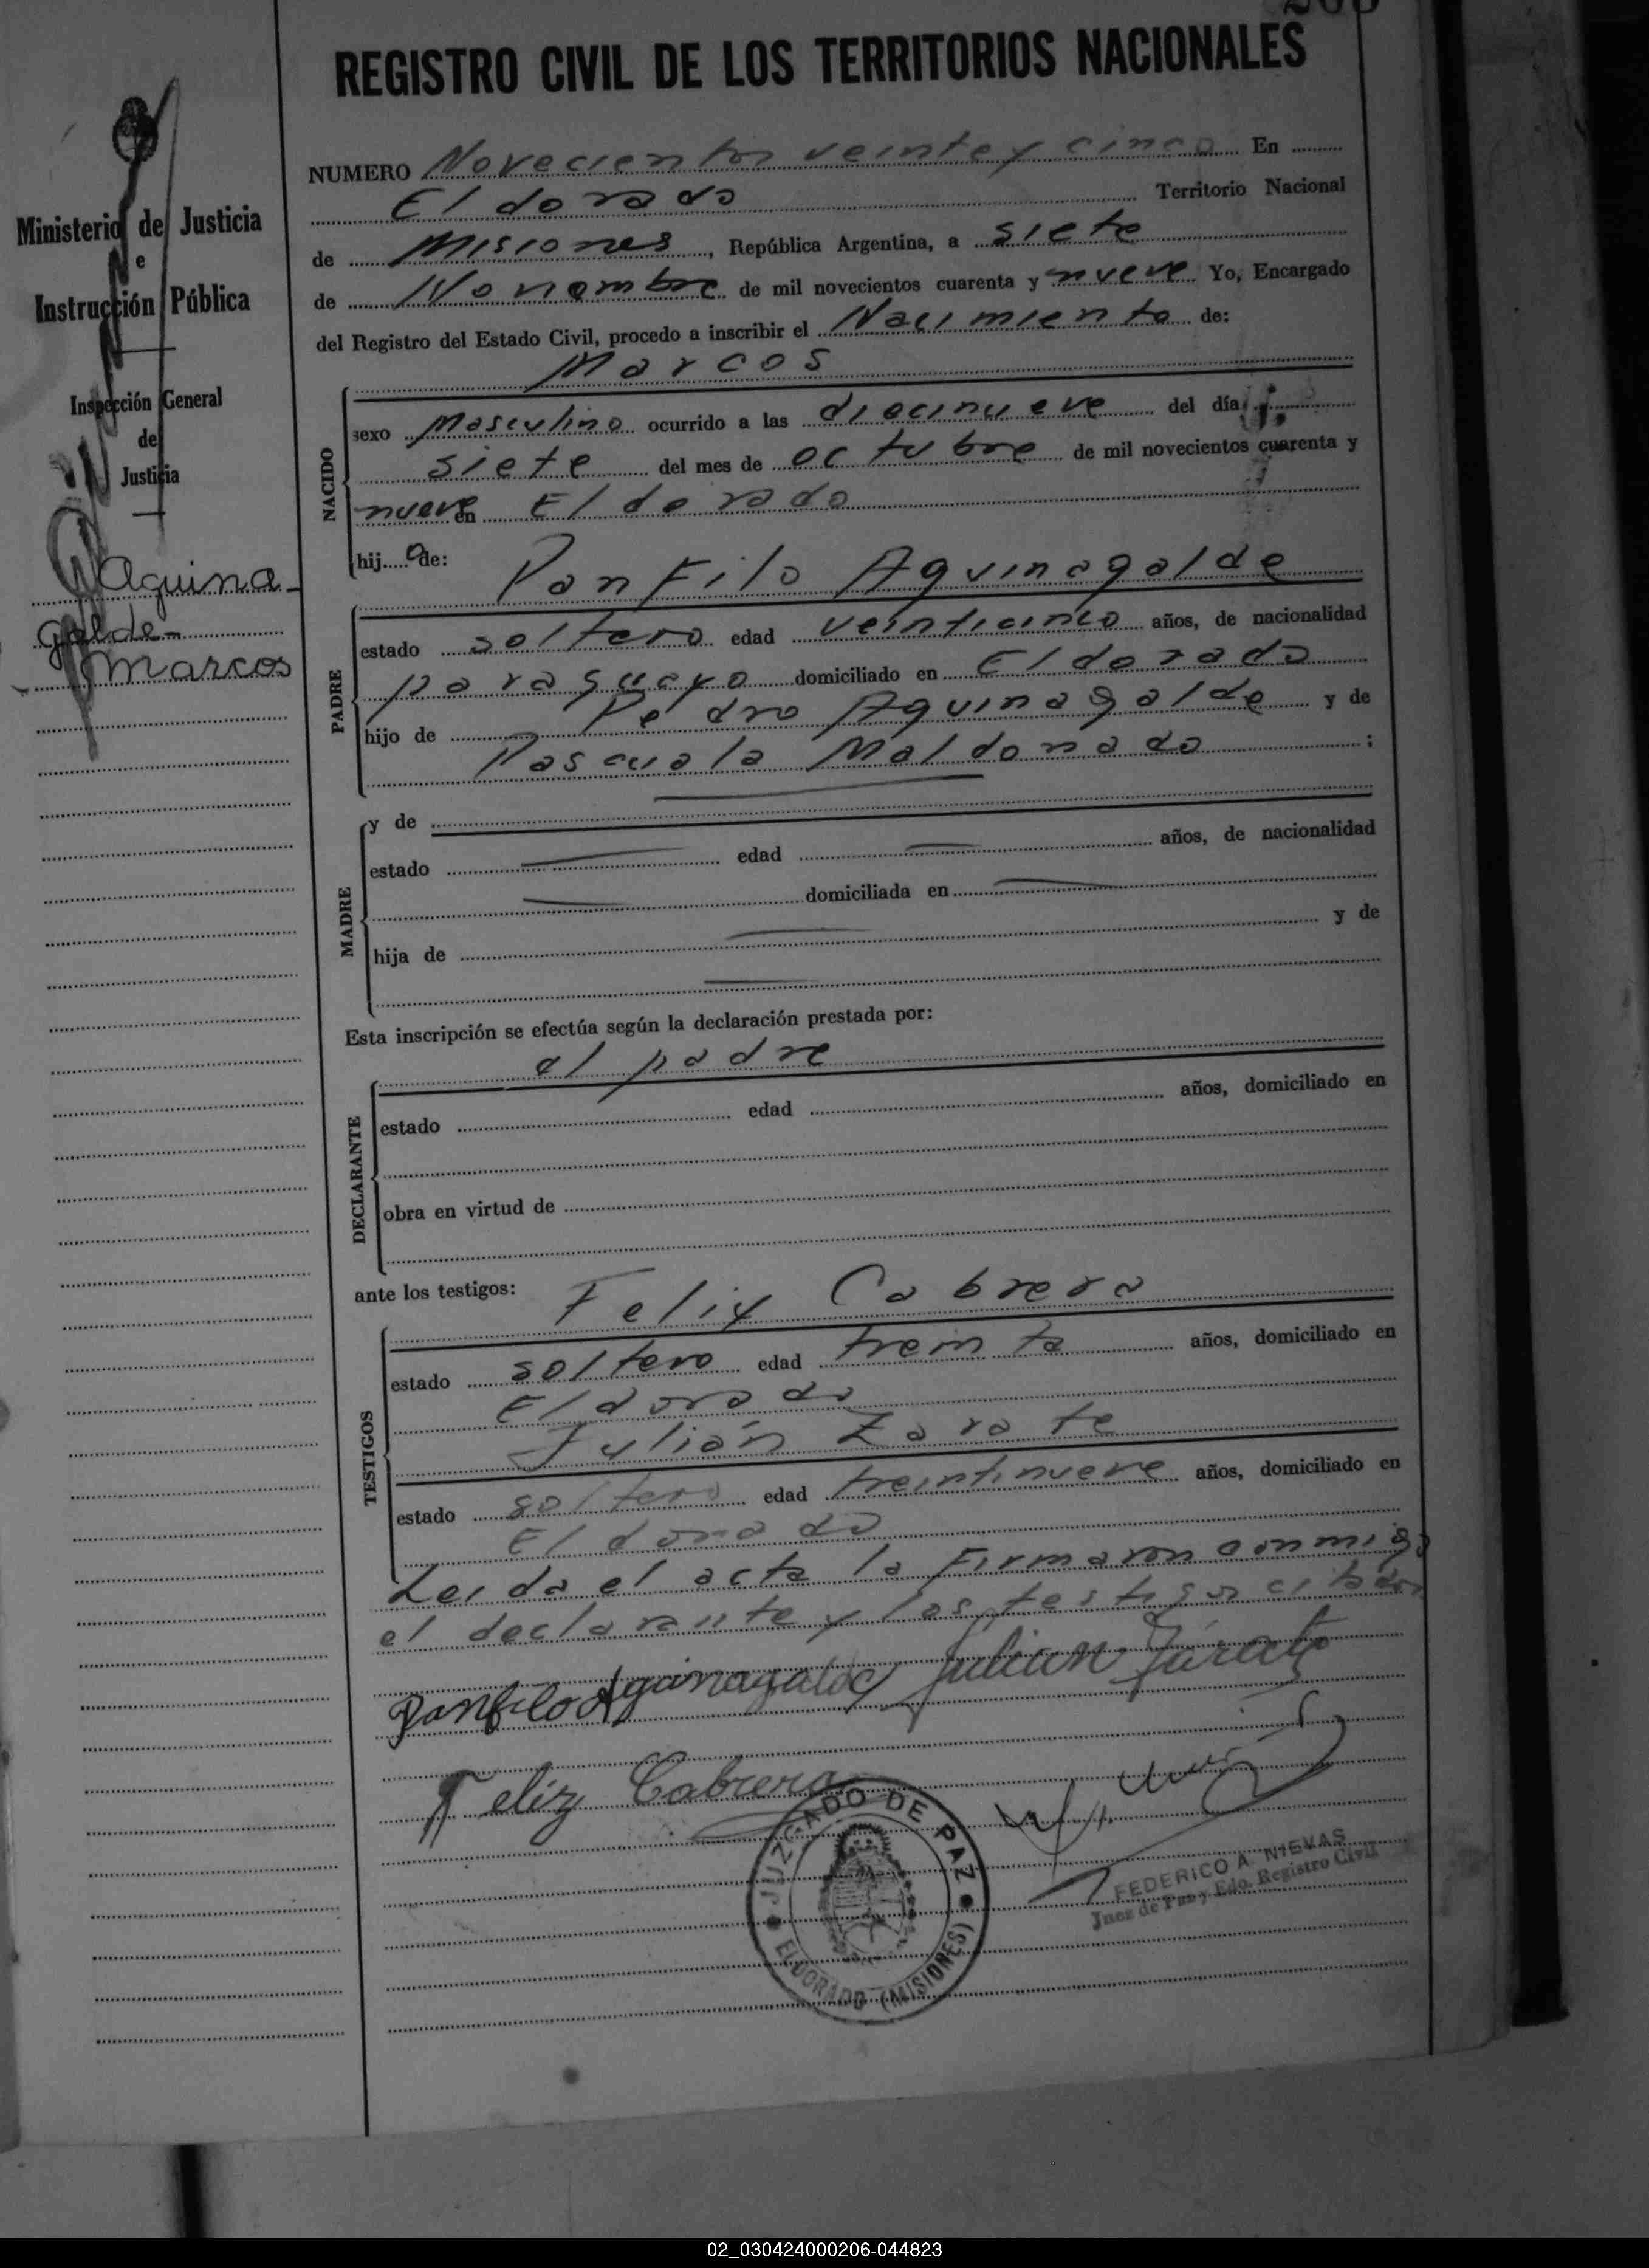 REGISTRO CIVIL DE LOS TERRITORIOS NACIONALES
Ministerio de Justicia
e
Instrucción Pública
Inspección General
de
Justicia
Aguina-
galde-
Marcos
NUMERO Novecientos veinte y cinco En
Eldorado Territorio Nacional
de Misiones, República Argentina, a siete
de Noviembre de mil novecientos cuarenta y nueve Yo, Encargado
del Registro del Estado Civil, procedo a inscribir el Nacimiento de:
Marcos
NACIDO
sexo Masculino ocurrido a las diecinueve del día
siete del mes de octubre de mil novecientos cuarenta y
nueve en Eldorado
hijo de: Panfilo Aguinagalde
PADRE
estado soltero edad veinticinco años, de nacionalidad
paraguayo domiciliado en Eldorado
hijo de Pedro Aguinagalde y de
Pascuala Maldonado ;
MADRE
y de
estado edad años, de nacionalidad
domiciliada en
hija de y de
Esta inscripción se efectúa según la declaración prestada por:
el padre
DECLARANTE
estado edad años, domiciliado en
obra en virtud de
ante los testigos: Felix Cabrera
TESTIGOS
estado soltero edad treinta años, domiciliado en
Eldorado
Julián Zarate
estado soltero edad treintinueve años, domiciliado en
Eldorado
Leida el acta la Firmaron conmigo
el declarante y los testigos citados
Panfilo Aguinagalde Julian Zárate
Feliz Cabrera
JUZGADO DE PAZ
ELDORADO (MISIONES)
FEDERICO A. NIEVAS
Juez de Paz y Edo. Registro Civil
02_030424000206-044823